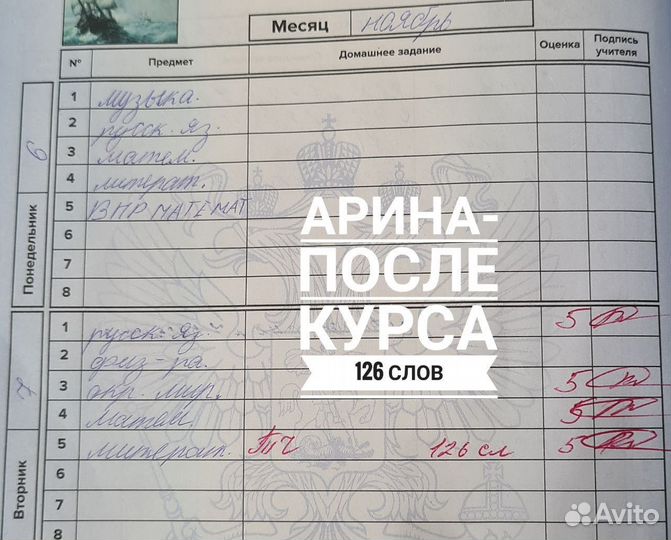 Месяц ноябрь
№ Предмет Домашнее задание Оценка Подпись учителя
Понедельник 6
1 музыка.
2 русск. яз.
3 матем.
4 литерат.
5 ВПР МАТЕМАТ
6
7
8
АРИНА-
ПОСЛЕ
КУРСА
126 СЛОВ
Вторник 7
1 русск. яз. 5
2 физ-ра.
3 окр. мир. 5
4 матем. 5
5 литерат. ТЧ 126 сл 5
6
7
8
Avito